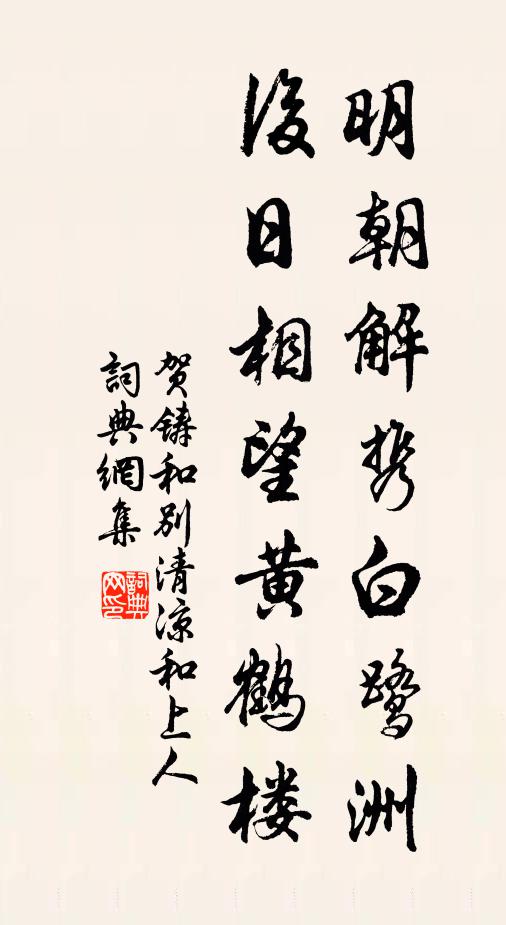 明朝解携白鹭洲
後日相望黄鹤楼
贺铸和别清凉和上人
詞典網集
詞典网印